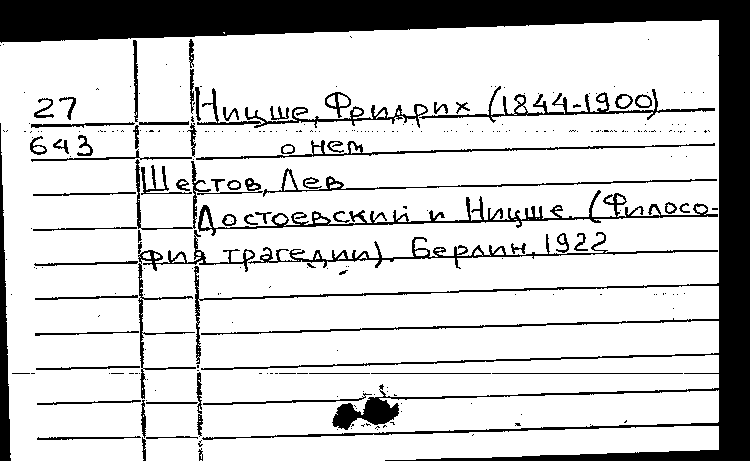 27 Ницше, Фридрих (1844-1900)
643 о нем
Шестов, Лев
Достоевский и Ницше. (Филосо-
фия трагедии). Берлин, 1922